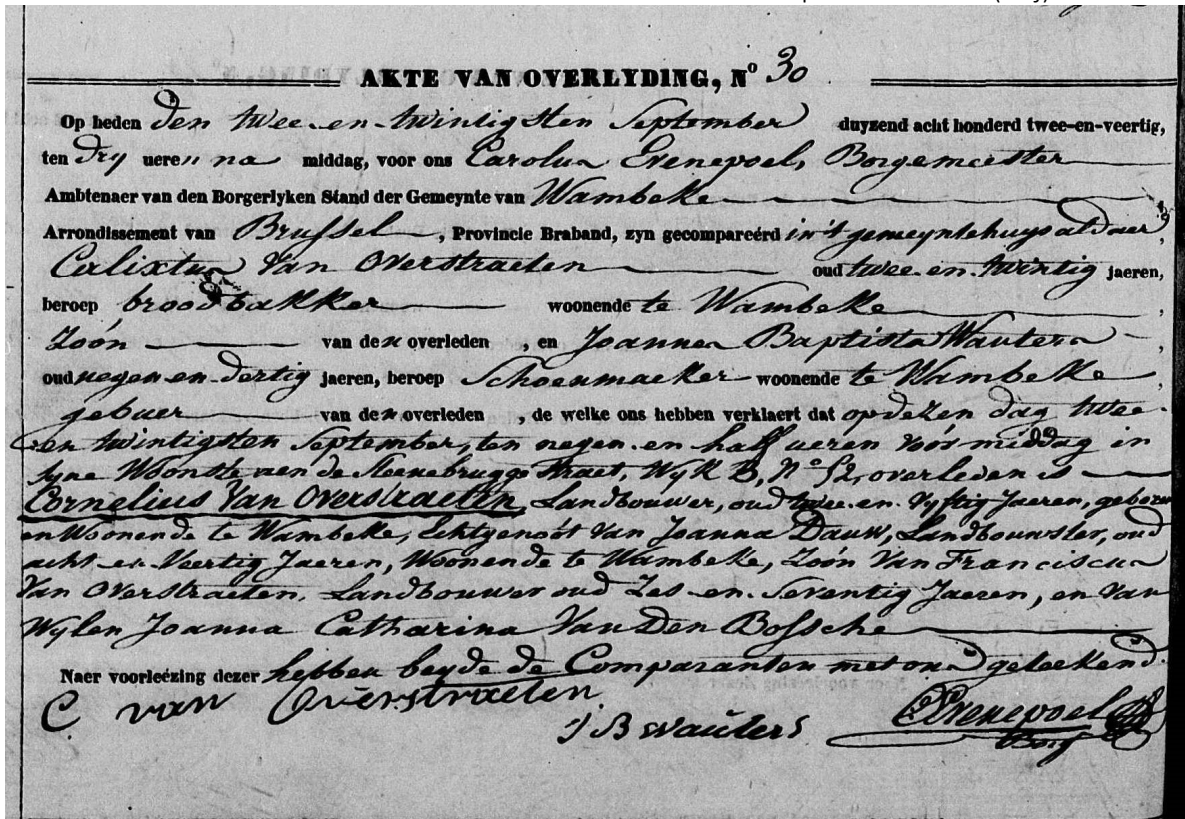 AKTE VAN OVERLYDING, No 30
Op heden den twee-en-twintigsten September duyzend acht honderd twee-en-veertig,
ten dry ueren na middag, voor ons Carolus Evenepoel, Borgemeester
Ambtenaer van den Borgerlyken Stand der Gemeynte van Wambeke
Arrondissement van Brussel, Provincie Braband, zyn gecompareérd in 't gemeyntehuys aldaer,
Calixtus Van Overstraeten oud twee-en-twintig jaeren,
beroep broodbakker woonende te Wambeke,
Zoón van den overleden, en Joannes Baptista Wauters,
oud negen-en-dertig jaeren, beroep Schoenmaeker woonende te Wambeke,
gebuer van den overleden, de welke ons hebben verklaert dat op dezen dag twee-
en-twintigsten September, ten negen-en-half ueren vóór middag in
syne Woonste aen de Steenebrugge Straet, Wyk B, No 52, overleden is
Cornelius Van Overstraeten, Landbouwer, oud twee-en-Vyftig Jaeren, geboren
en Woonende te Wambeke, Echtgenoót Van Joanna Dauw, Landbouwster, oud
acht-en-Veertig Jaeren, Woonende te Wambeke, Zoón Van Franciscus
Van Overstraeten, Landbouwer oud Zes-en-Seventig Jaeren, en Van
Wylen Joanna Catharina Van Den Bossche
Naer voorleézing dezer hebben beyde de Comparanten met ons geteekend.
C van Overstraeten
J B Wauters
C Evenepoel
Borg